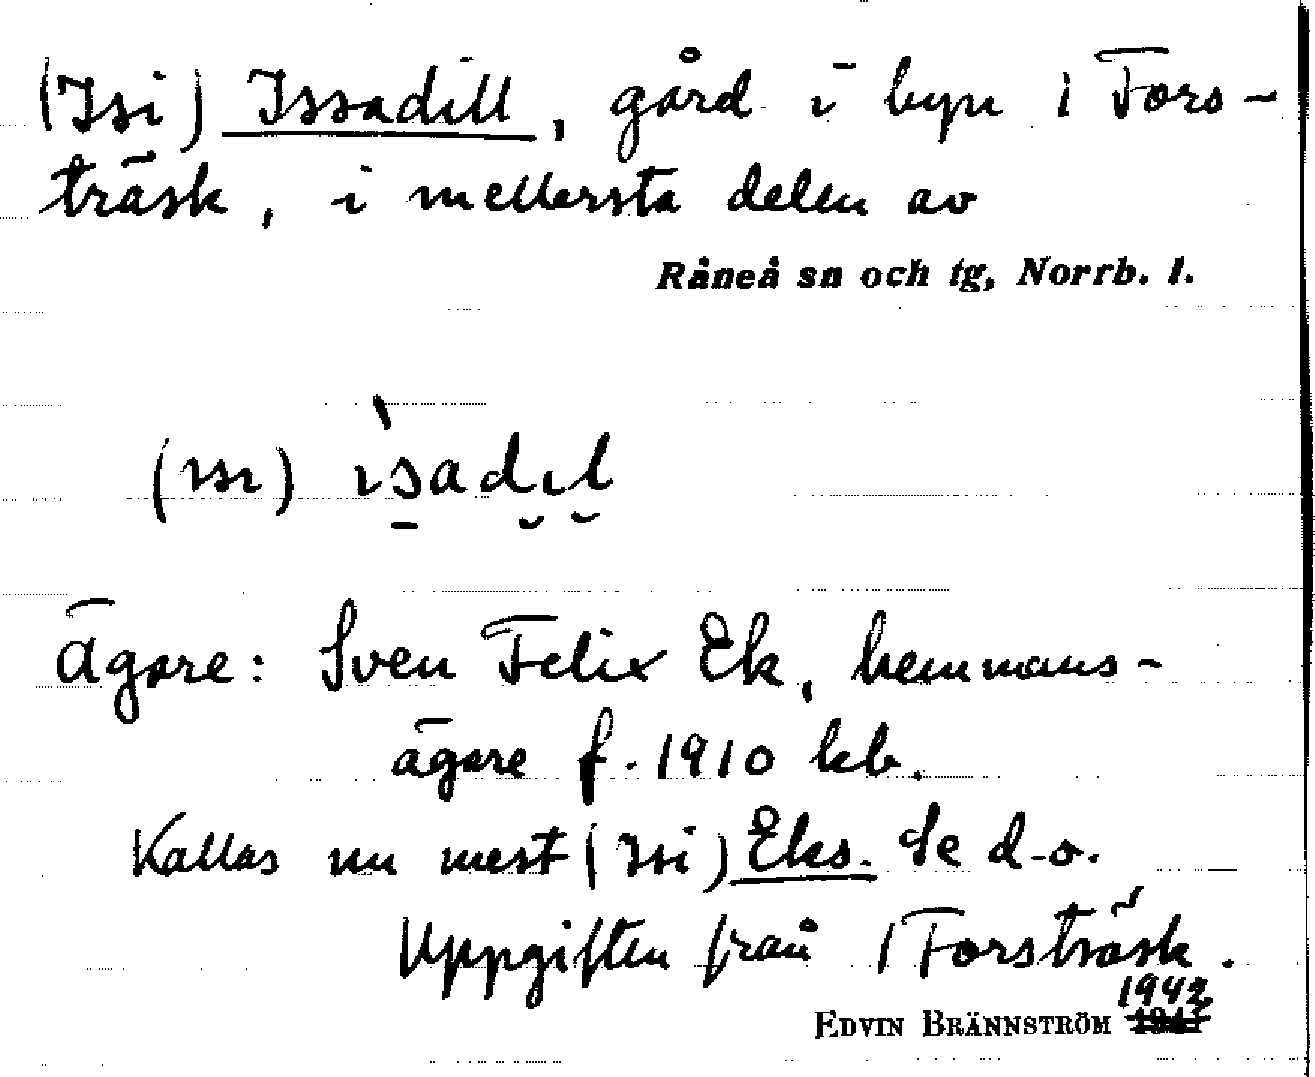 (Isi) Issadill, gård i byn 1 Fors-
träsk, i mellersta delen av
Råneå sn och tg, Norrb. l.
(ısı) ìsadıl
Ägare: Sven Felix Ek, hemmans-
ägare f. 1910 kb.
Kallas nu mest (Isi) Eks. Se d.o.
Uppgiften från 1 Forsträsk.
1942
EDVIN BRÄNNSTRÖM 1941